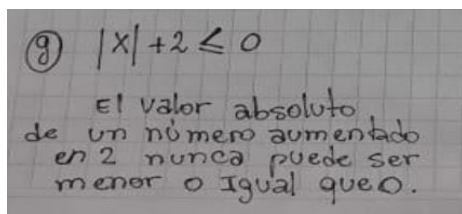 g) |x| + 2 ≤ 0
El valor absoluto
de un número aumentado
en 2 nunca puede ser
menor o Igual que 0.